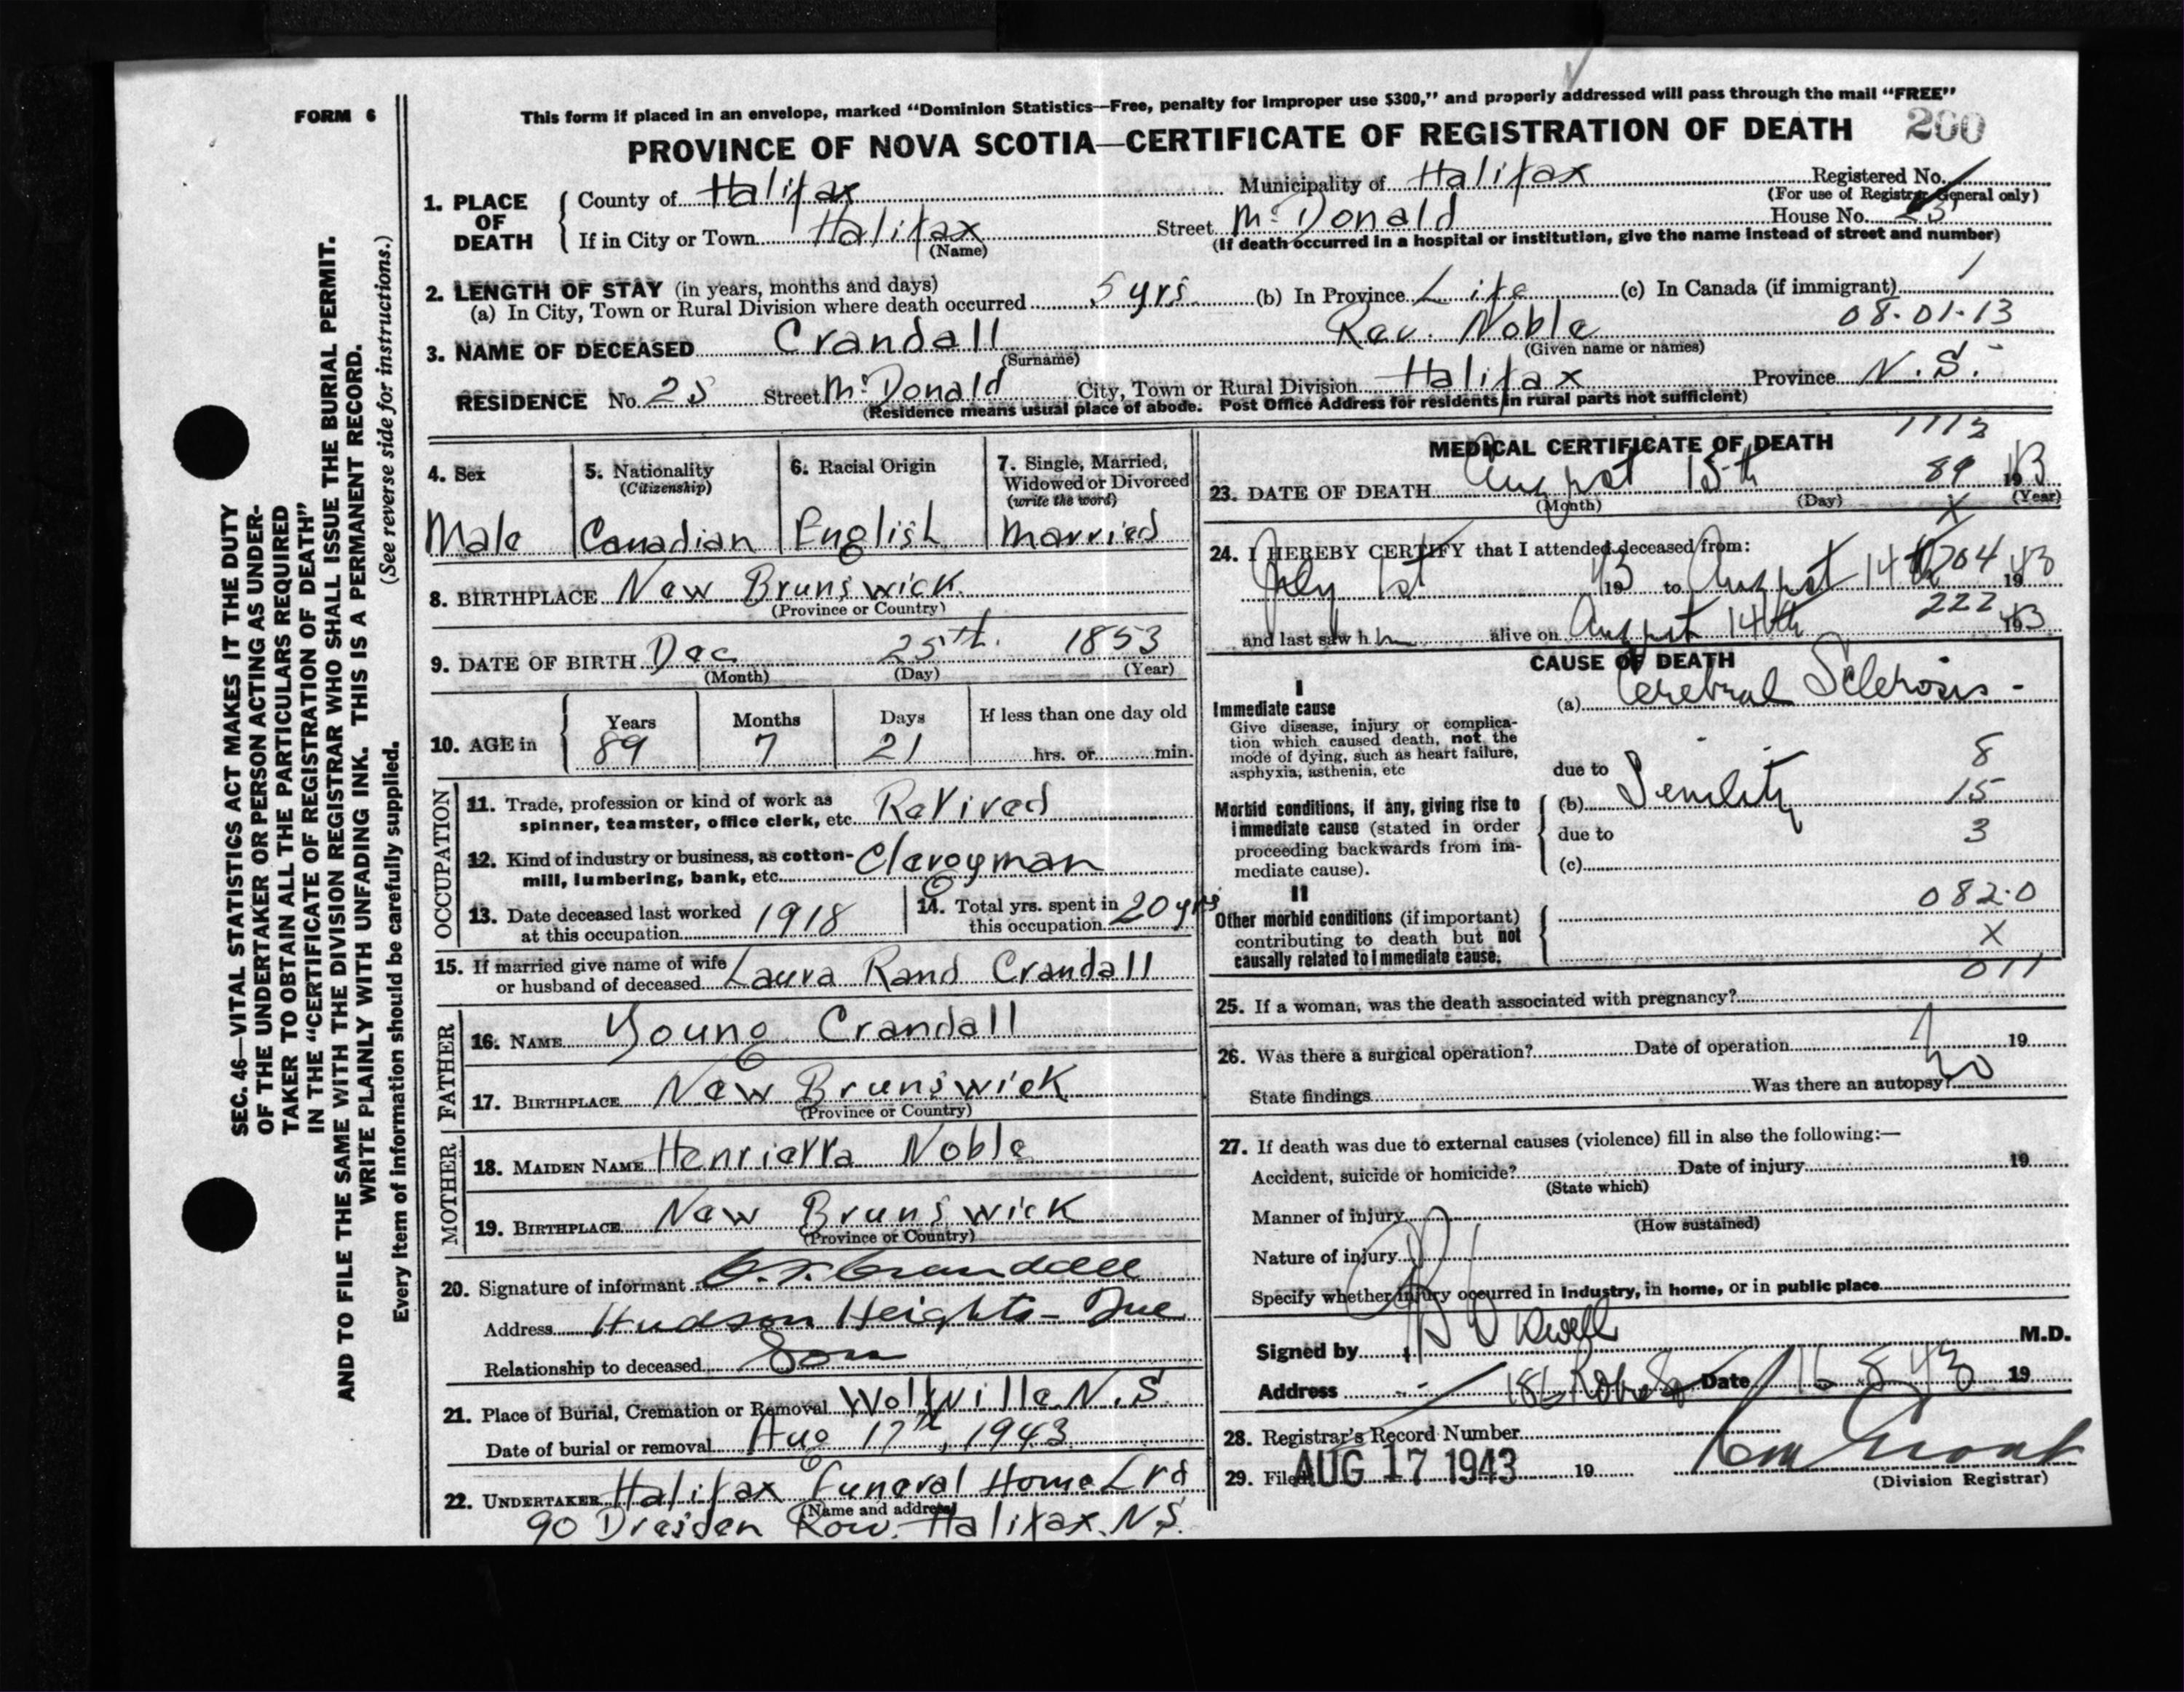 FORM 6
SEC. 46—VITAL STATISTICS ACT MAKES IT THE DUTY
OF THE UNDERTAKER OR PERSON ACTING AS UNDER-
TAKER TO OBTAIN ALL THE PARTICULARS REQUIRED
IN THE "CERTIFICATE OF REGISTRATION OF DEATH"
AND TO FILE THE SAME WITH THE DIVISION REGISTRAR WHO SHALL ISSUE THE BURIAL PERMIT.
WRITE PLAINLY WITH UNFADING INK. THIS IS A PERMANENT RECORD.
(See reverse side for instructions.)
Every item of information should be carefully supplied.
This form if placed in an envelope, marked "Dominion Statistics—Free, penalty for improper use $300," and properly addressed will pass through the mail "FREE"
PROVINCE OF NOVA SCOTIA—CERTIFICATE OF REGISTRATION OF DEATH 200
1. PLACE OF DEATH
County of Halifax Municipality of Halifax Registered No.
(For use of Registrar General only)
If in City or Town Halifax Street McDonald House No. 25
(Name) (If death occurred in a hospital or institution, give the name instead of street and number)
2. LENGTH OF STAY (in years, months and days)
(a) In City, Town or Rural Division where death occurred 5 yrs. (b) In Province Life (c) In Canada (if immigrant) /
08-01-13
3. NAME OF DECEASED Crandall Rev. Noble
(Surname) (Given name or names)
RESIDENCE No. 25 Street McDonald City, Town or Rural Division Halifax Province N.S.
(Residence means usual place of abode. Post Office Address for residents in rural parts not sufficient)
4. Sex
Male
5. Nationality
(Citizenship)
Canadian
6. Racial Origin
English
7. Single, Married,
Widowed or Divorced
(write the word)
Married
8. BIRTHPLACE New Brunswick
(Province or Country)
9. DATE OF BIRTH Dec 25th. 1853
(Month) (Day) (Year)
10. AGE in
Years Months Days If less than one day old
89 7 21 hrs. or min.
OCCUPATION
11. Trade, profession or kind of work as
spinner, teamster, office clerk, etc. Retired
12. Kind of industry or business, as cotton-
mill, lumbering, bank, etc. Clergyman
13. Date deceased last worked
at this occupation 1918
14. Total yrs. spent in
this occupation 20 yrs
15. If married give name of wife
or husband of deceased Laura Rand Crandall
FATHER
16. NAME Young Crandall
17. BIRTHPLACE New Brunswick
(Province or Country)
MOTHER
18. MAIDEN NAME Henrietta Noble
19. BIRTHPLACE New Brunswick
(Province or Country)
20. Signature of informant Crandall
Address Hudson Heights - Que
Relationship to deceased Son
21. Place of Burial, Cremation or Removal Wolfville N.S.
Date of burial or removal Aug 17th, 1943
22. UNDERTAKER Halifax Funeral Home Ltd
(Name and address)
90 Dresden Row. Halifax. N.S.
MEDICAL CERTIFICATE OF DEATH 1112
23. DATE OF DEATH August 15th 89 1943
(Month) (Day) (Year)
X
24. I HEREBY CERTIFY that I attended deceased from:
July 1st 1943 to August 14th 704 1943
222
and last saw h alive on August 14th 1943
CAUSE OF DEATH
I
Immediate cause
Give disease, injury or complica-
tion which caused death, not the
mode of dying, such as heart failure,
asphyxia, asthenia, etc
(a) Cerebral Sclerosis -
due to 8
Morbid conditions, if any, giving rise to
immediate cause (stated in order
proceeding backwards from im-
mediate cause).
(b) Senility 15
due to 3
(c)
II
Other morbid conditions (if important)
contributing to death but not
causally related to immediate cause.
082.0
X
011
25. If a woman, was the death associated with pregnancy?
26. Was there a surgical operation? Date of operation 19
State findings Was there an autopsy? no
27. If death was due to external causes (violence) fill in also the following:—
Accident, suicide or homicide? Date of injury 19
(State which)
Manner of injury
(How sustained)
Nature of injury
Specify whether injury occurred in industry, in home, or in public place
Signed by M.D.
Address 186 Date 16 8 43 19
28. Registrar's Record Number
29. Filed AUG 17 1943 19
(Division Registrar)